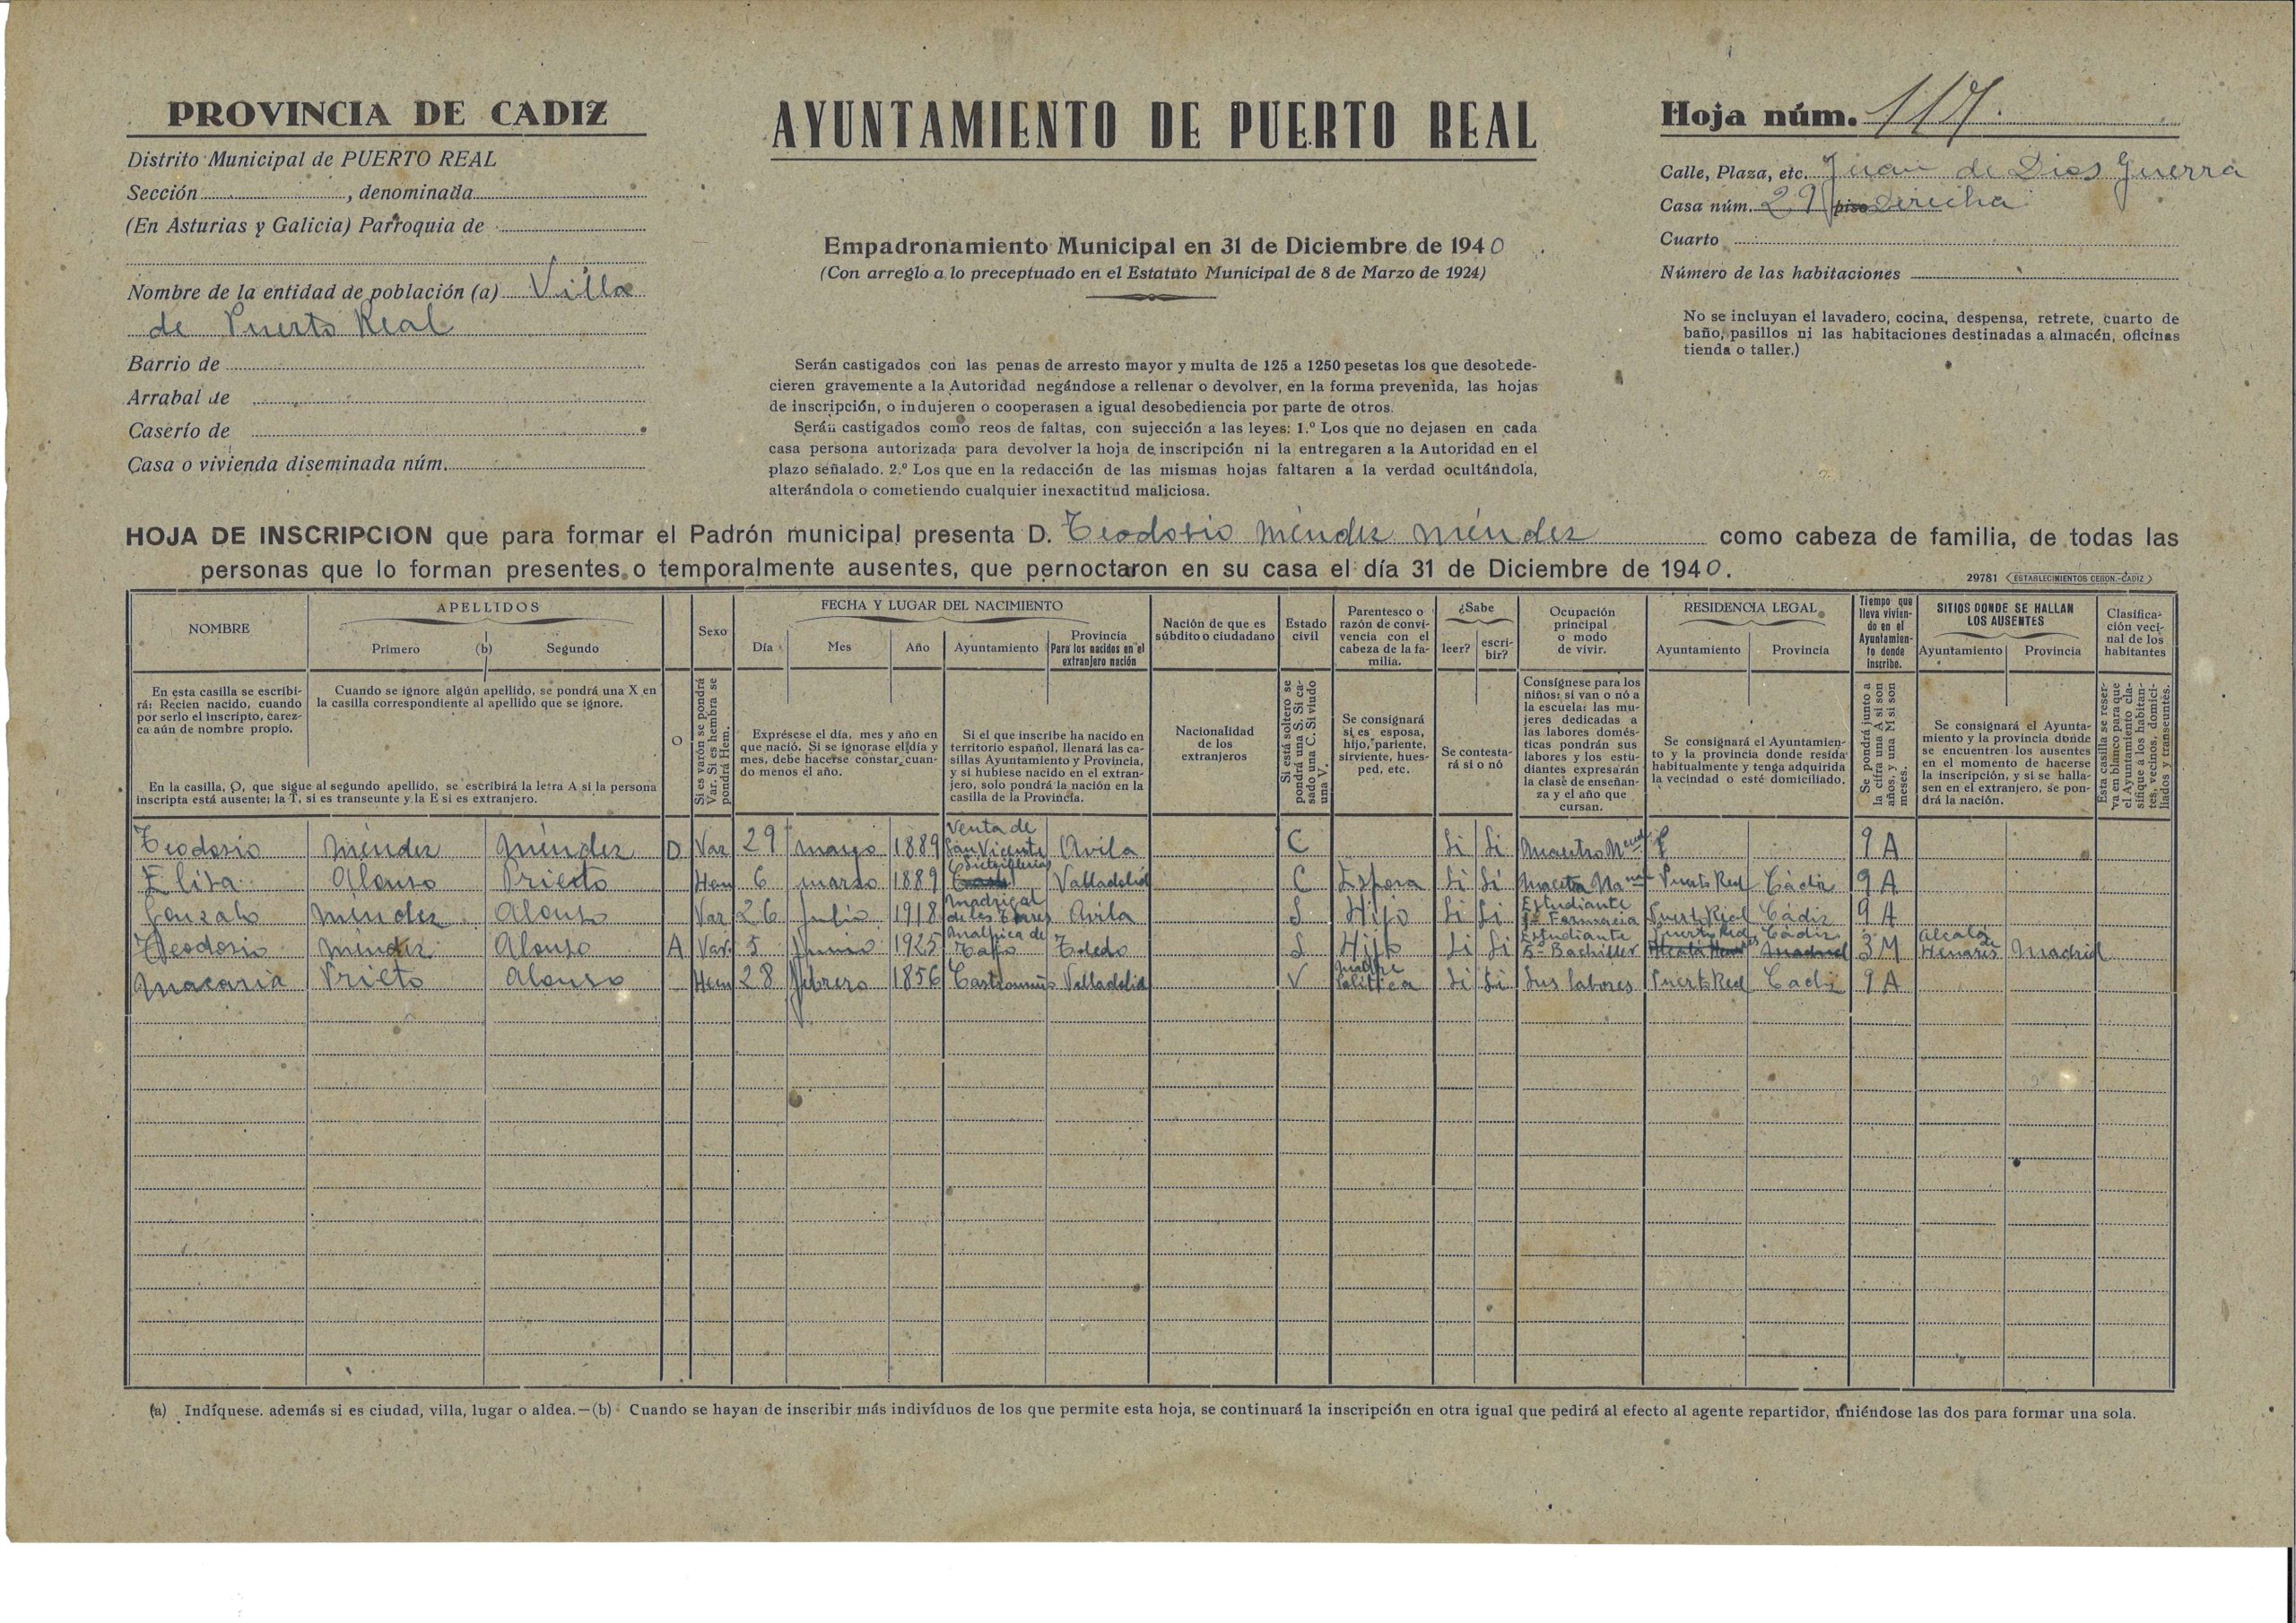 PROVINCIA DE CADIZ
Distrito Municipal de PUERTO REAL
Sección , denominada
(En Asturias y Galicia) Parroquia de
Nombre de la entidad de población (a) Villa
de Puerto Real
Barrio de
Arrabal de
Caserío de
Casa o vivienda diseminada núm.
AYUNTAMIENTO DE PUERTO REAL
Empadronamiento Municipal en 31 de Diciembre de 1940
(Con arreglo a lo preceptuado en el Estatuto Municipal de 8 de Marzo de 1924)
Serán castigados con las penas de arresto mayor y multa de 125 a 1250 pesetas los que desobede-
cieren gravemente a la Autoridad negándose a rellenar o devolver, en la forma prevenida, las hojas
de inscripción, o indujeren o cooperasen a igual desobediencia por parte de otros.
Serán castigados como reos de faltas, con sujección a las leyes: 1.º Los que no dejasen en cada
casa persona autorizada para devolver la hoja de inscripción ni la entregaren a la Autoridad en el
plazo señalado. 2.º Los que en la redacción de las mismas hojas faltaren a la verdad ocultándola,
alterándola o cometiendo cualquier inexactitud maliciosa.
Hoja núm. 117.
Calle, Plaza, etc. Juan de Dios Guerra
Casa núm. 29 piso derecha
Cuarto
Número de las habitaciones
No se incluyan el lavadero, cocina, despensa, retrete, cuarto de
baño, pasillos ni las habitaciones destinadas a almacén, oficinas
tienda o taller.)
HOJA DE INSCRIPCION que para formar el Padrón municipal presenta D. Teodosio Méndez Méndez como cabeza de familia, de todas las
personas que lo forman presentes o temporalmente ausentes, que pernoctaron en su casa el día 31 de Diciembre de 1940.
29781 ESTABLECIMIENTOS CERON.-CADIZ
NOMBRE
APELLIDOS
Primero (b) Segundo
O
Sexo
FECHA Y LUGAR DEL NACIMIENTO
Día Mes Año Ayuntamiento
Provincia
Para los nacidos en el
extranjero nación
Nación de que es
súbdito o ciudadano
Estado
civil
Parentesco o
razón de convi-
vencia con el
cabeza de la fa-
milia.
¿Sabe
leer? escri-
bir?
Ocupación
principal
o modo
de vivir.
RESIDENCIA LEGAL
Ayuntamiento Provincia
Tiempo que
lleva vivien-
do en el
Ayuntamien-
to donde
inscribo.
SITIOS DONDE SE HALLAN
LOS AUSENTES
Ayuntamiento Provincia
Clasifica-
ción veci-
nal de los
habitantes
En esta casilla se escribi-
rá: Recien nacido, cuando
por serlo el inscripto, carez-
ca aún de nombre propio.
Cuando se ignore algún apellido, se pondrá una X en
la casilla correspondiente al apellido que se ignore.
En la casilla, O, que sigue al segundo apellido, se escribirá la letra A si la persona
inscripta está ausente; la T, si es transeunte y la E si es extranjero.
Si es varón se pondrá
Var. Si es hembra se
pondrá Hem.
Exprésese el día, mes y año en
que nació. Si se ignorase el día y
mes, debe hacerse constar cuan-
do menos el año.
Si el que inscribe ha nacido en
territorio español, llenará las ca-
sillas Ayuntamiento y Provincia,
y si hubiese nacido en el extran-
jero, solo pondrá la nación en la
casilla de la Provincia.
Nacionalidad
de los
extranjeros
Si está soltero se
pondrá una S. Si ca-
sado una C. Si viudo
una V.
Se consignará
si es esposa,
hijo, pariente,
sirviente, hues-
ped, etc.
Se contesta-
rá si o nó
Consígnese para los
niños: si van o nó a
la escuela: las mu-
jeres dedicadas a
las labores domés-
ticas pondrán sus
labores y los estu-
diantes expresarán
la clase de enseñan-
za y el año que
cursan.
Se consignará el Ayuntamien-
to y la provincia donde resida
habitualmente y tenga adquirida
la vecindad o esté domiciliado.
Se pondrá junto a
la cifra una A si son
años, y una M si son
meses.
Se consignará el Ayunta-
miento y la provincia donde
se encuentren los ausentes
en el momento de hacerse
la inscripción, y si se halla-
sen en el extranjero, se pon-
drá la nación.
Esta casilla se reser-
va en blanco para que
el Ayuntamiento cla-
sifique a los habitan-
tes, vecinos, domici-
liados y transeuntes.
Teodosio Méndez Méndez D Var 29 mayo 1889 Venta de San Vicente Avila C Si Si Maestro 9 A
Elisa Alonso Prieto Hem 6 marzo 1889 Valladolid C Esposa Si Si Maestra Puerto Real Cádiz 9 A
Gonzalo Méndez Alonso Var 26 Julio 1918 Madrigal de las Avila S Hijo Si Si Estudiante Farmacia Puerto Real Cádiz 9 A
Teodosio Méndez Alonso A Var 5 Junio 1925 Malpica de Tajo Toledo S Hijo Si Si Estudiante 5º Bachiller Puerto Real Cádiz 3 M Alcalá de Henares Madrid
Macaria Prieto Alonso Hem 28 febrero 1856 Castronuño Valladolid V Madre Política Si Si Sus labores Puerto Real Cadiz 9 A
(a) Indíquese. además si es ciudad, villa, lugar o aldea.—(b) Cuando se hayan de inscribir más indivíduos de los que permite esta hoja, se continuará la inscripción en otra igual que pedirá al efecto al agente repartidor, uniéndose las dos para formar una sola.